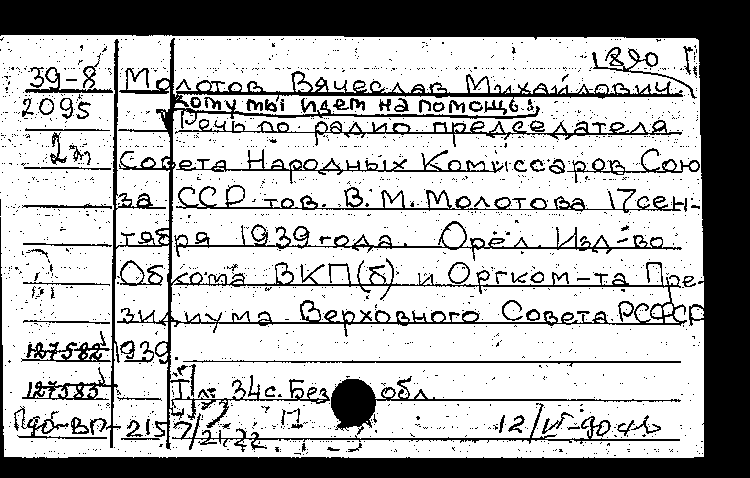 1890
39-8 Молотов, Вячеслав Михайлович.
2095 Кому мы идем на помощь.
Речь по радио председателя
2т Совета Народных Комиссаров Сою
за ССР тов. В. М. Молотова 17 сен-
тября 1939 года. Орёл. Изд-во
Обкома ВКП(б) и Оргком-та Пре-
зидиума Верховного Совета РСФСР
127582 1939.
127583 34 с. Без обл.
215 21,22 12/VI-90